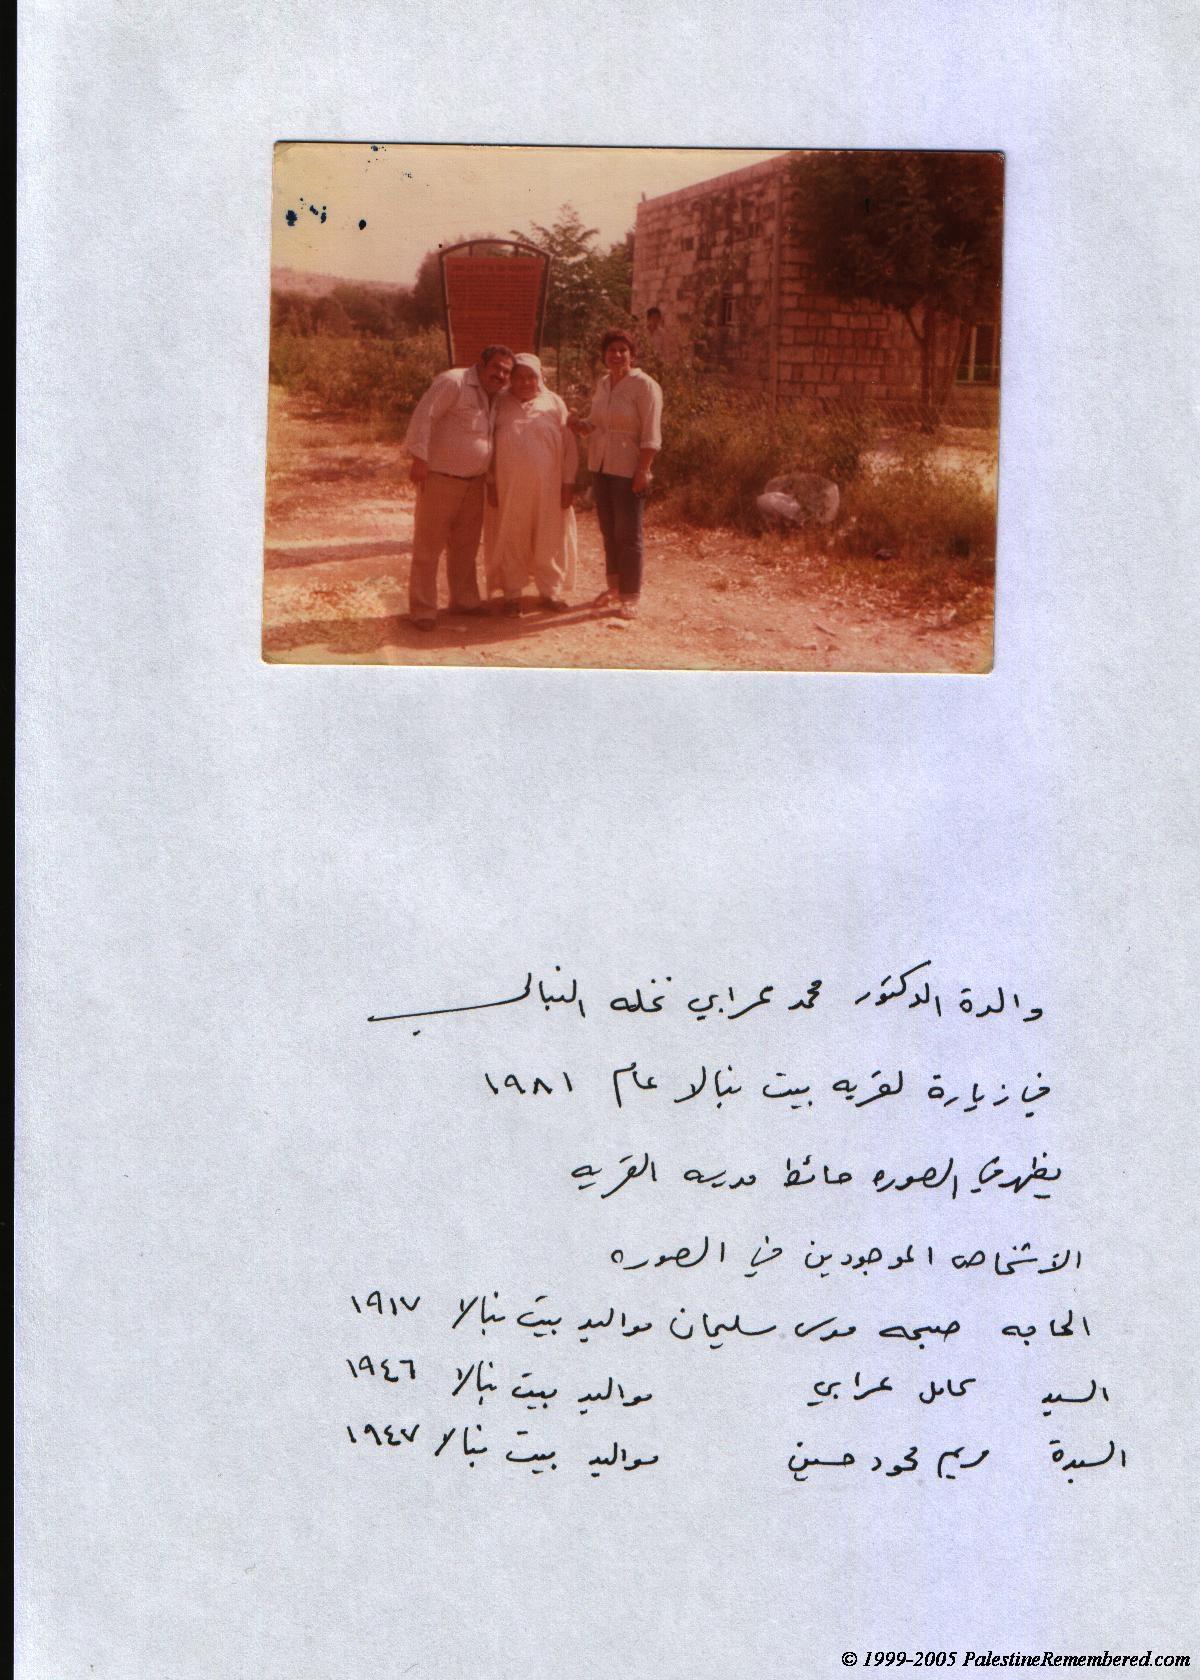 والدة الدكتور محمد عرابي نخله النبالي
في زيارة لقريه بيت نبالا عام ١٩٨١
يظهر في الصوره حائط مدرسه القريه
الاشخاص الموجودين في الصوره
الحاجه صبحه موسى سليمان مواليد بيت نبالا ١٩١٧
السيد كامل عرابي مواليد بيت نبالا ١٩٤٦
السيدة مريم محمود حسين مواليد بيت نبالا ١٩٤٧
© 1999-2005 PalestineRemembered.com